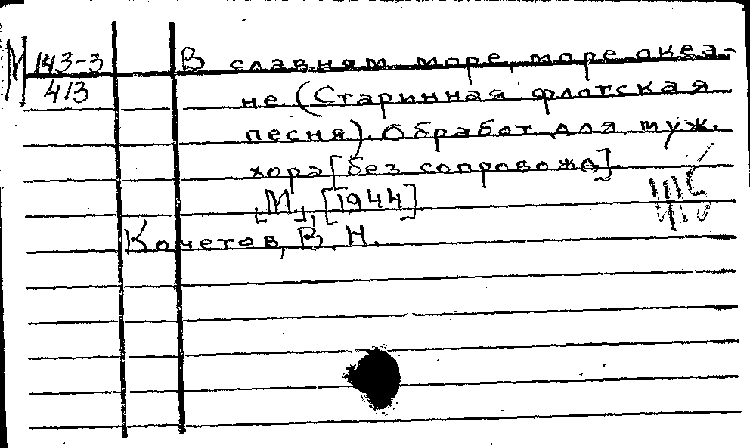 М 143-3
413
В славням море, море океа-
не (Старинная флотская
песня). Обработ. для муж.
хора [без сопровожд]
[М], [1944]
Кочетов, В. Н.